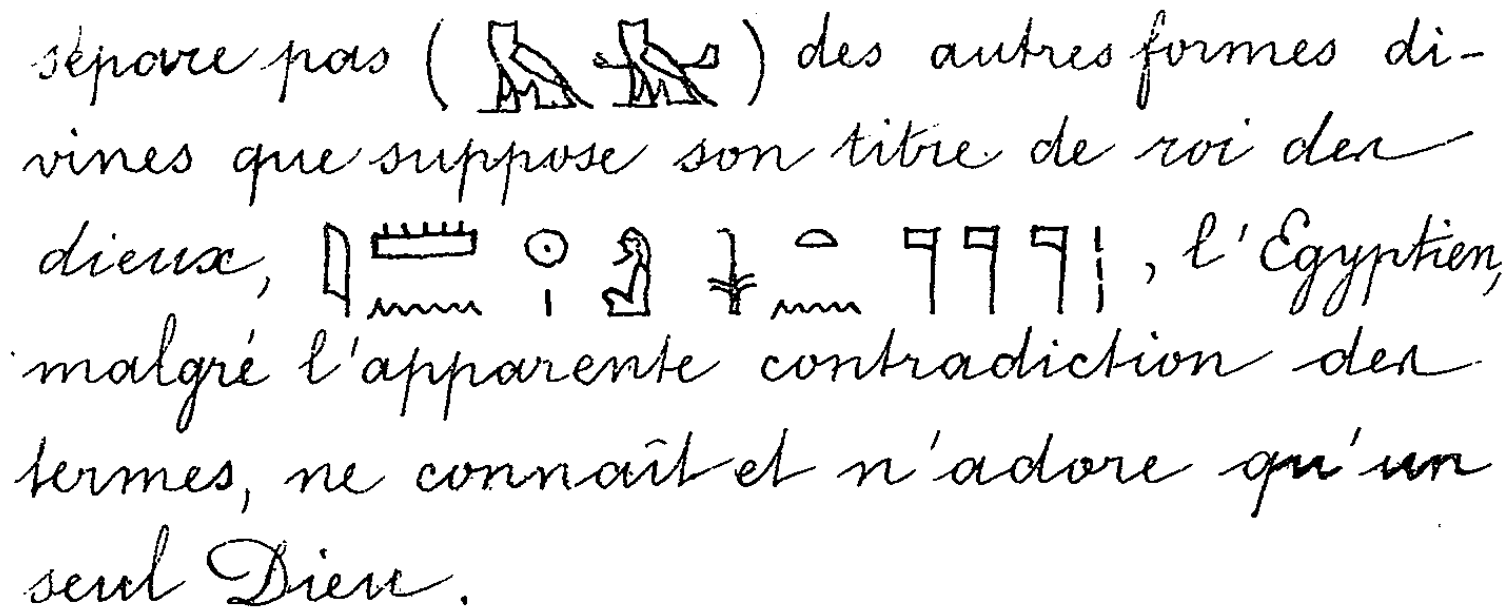 sépare pas (𓅓 𓅕) des autres formes di-
vines que suppose son titre de roi des
dieux, 𓇋𓏠𓈖𓇳𓏤𓀭𓇓𓏏𓈖𓊹𓊹𓊹𓏥, l'Egyptien,
malgré l'apparente contradiction des
termes, ne connaît et n'adore qu'un
seul Dieu.